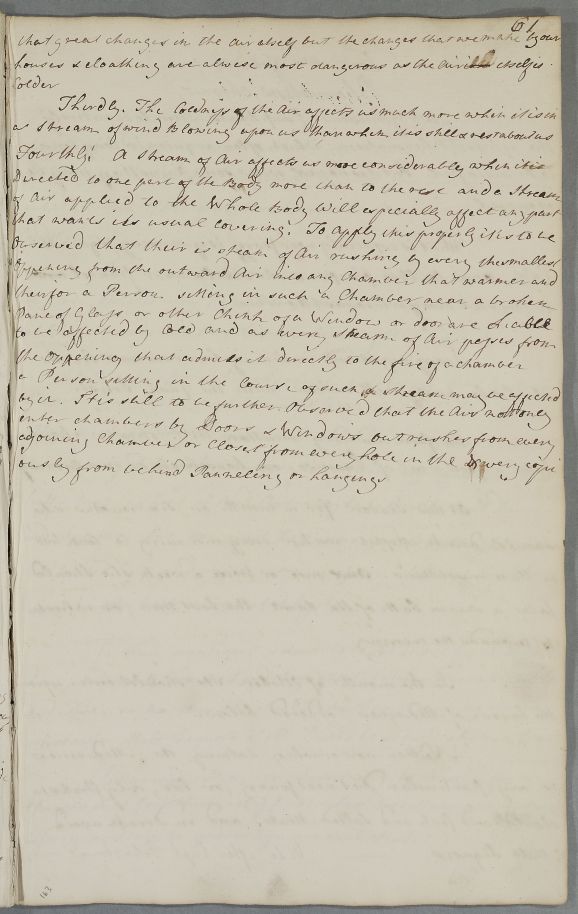 61
that great changes in the air itself but the changes that we make by our
houses & cloathing are alwise most dangerous as the air itself is
Colder
Thirdly. The Coldness of the Air affects us much more when it is in
a Stream of wind Blowing upon us than when it is still or restabout us
Fourthly! A Stream of Air affects us more considerably when it is
Directed to one part of the Body more than to the rest and a Stream
of Air applyed to the Whole Body Will especially affect any part
that wants its usual covering: To apply this properly it is to be
Observed that their is steam of Air rushing by every the smallest
Oppening from the outward Air into any Chamber that warmer and
their for a Person sitting in such a Chamber near a broken
Pane of Glass, or other Chink of a Window or door are Liable
to be Affected by Cold and as every stream of Air passes from
the oppening that admits it directly to the fire of a chamber
a Person sitting in the Course of such a stream may be affected
by it. It is still to be further Observe'd that the Air not only
enter chambers by Doors & Windows but rushes from every
adjoining Chamber or Closet from every hole in the & very copi
ously from behind Panneling or hangings
163